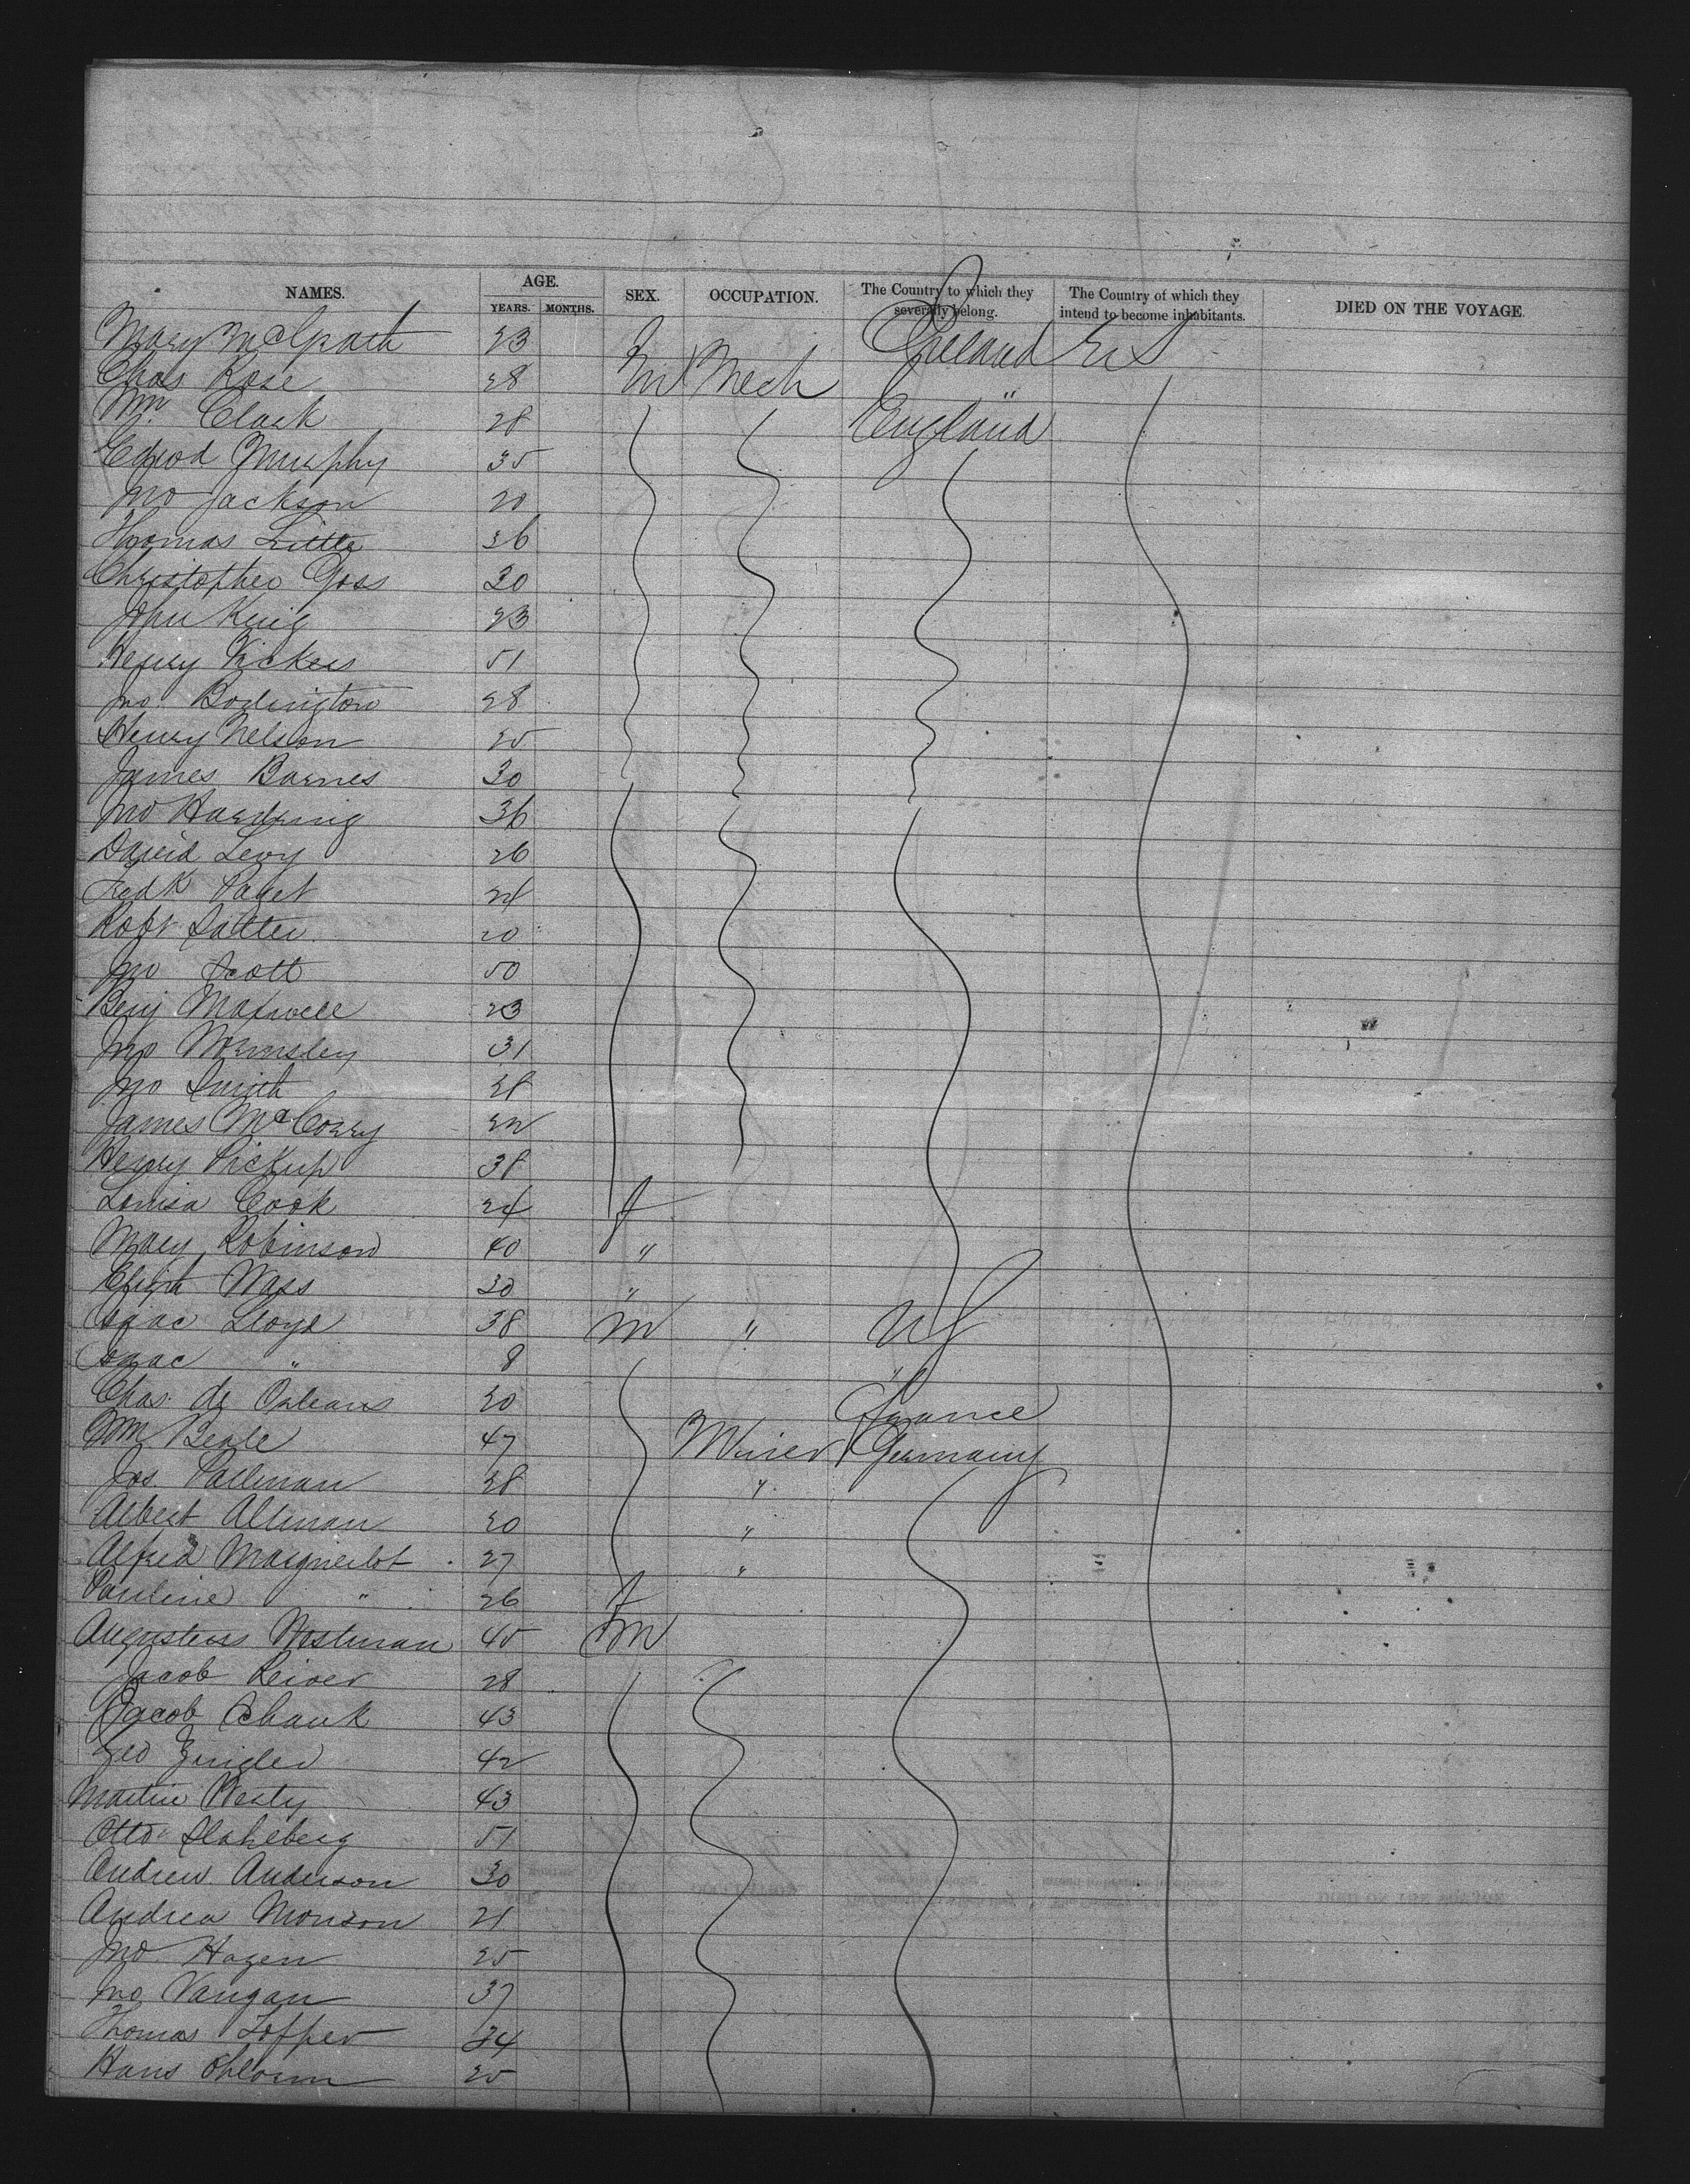 NAMES. AGE. YEARS. MONTHS. SEX. OCCUPATION. The Country to which they severally belong. The Country of which they intend to become inhabitants. DIED ON THE VOYAGE.
Mary McGrath 23 Ireland U S
Chas Rose 28 M Mech "
Wm Clark 28 England
Edwd Murphy 35
Jno Jackson 20
Thomas Little 36
Christopher Goss 30
John King 23
Henry Vickers 51
Jno. Bodington 28
Henry Nelson 25
James Barnes 30
Jno Harding 36
David Levy 26
Fredk Paget 24
Robt Salter 20
Jno Scott 50
Benj Maxwell 23
Jno Wemsley 31
Jno Smith 28
James McCorry 22
Henry Pickup 38
Louisa Cook 24 f
Mary Robinson 40 "
Elizth Wass 30 "
Isaac Lloyd 38 M " US
Isaac " 8 "
Chas. de Orleans 20 France
Wm Beale 47 Miner Germany
Jos. Pallman 28 "
Albert Altman 20 "
Alfred 27 "
Pauline " 26 f
Augustus Westman 45 M
Jacob 28
Jacob Schauk 43
Geo 42
Martin 43
Otto Stahlberg 51
Andrew Anderson 30
Andrea Monson 21
Jno. Hagen 25
Jno Vangan 37
Thomas Toffer 34
Hans 25